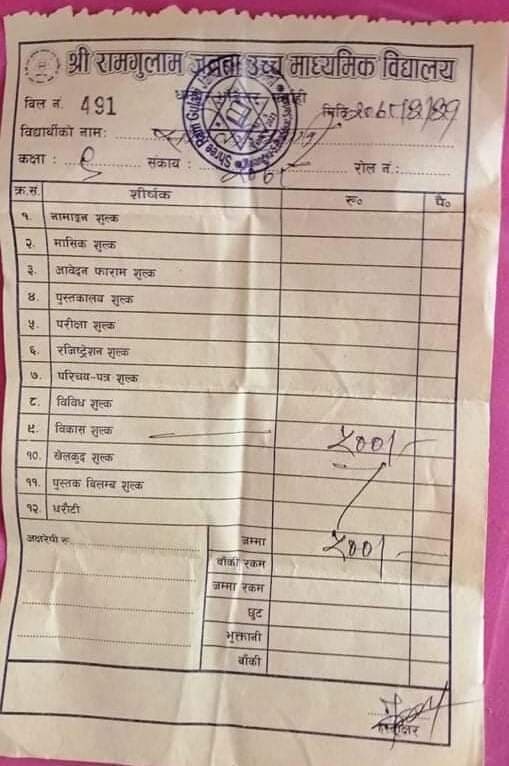 श्री रामगुलाम जनता उच्च माध्यमिक विद्यालय
बिल नं. 491 मिति:
विद्यार्थीको नाम:
कक्षा : ९ संकाय : रोल नं.:
क्र.सं. शीर्षक रु० पै०
१. नामाङ्कन शुल्क
२. मासिक शुल्क
३. आवेदन फाराम शुल्क
४. पुस्तकालय शुल्क
५. परीक्षा शुल्क
६. रजिष्ट्रेशन शुल्क
७. परिचय-पत्र शुल्क
८. विविध शुल्क
९. विकास शुल्क ५००।-
१०. खेलकुद शुल्क
११. पुस्तक बिलम्ब शुल्क
१२. धरौटी
अक्षरेपी रु. जम्मा ५००।-
बाँकी रकम
जम्मा रकम
छुट
भुक्तानी
बाँकी
हस्ताक्षर